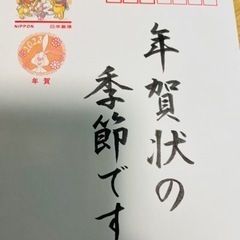 年賀状の
季節です
NIPPON
日本郵便
年賀